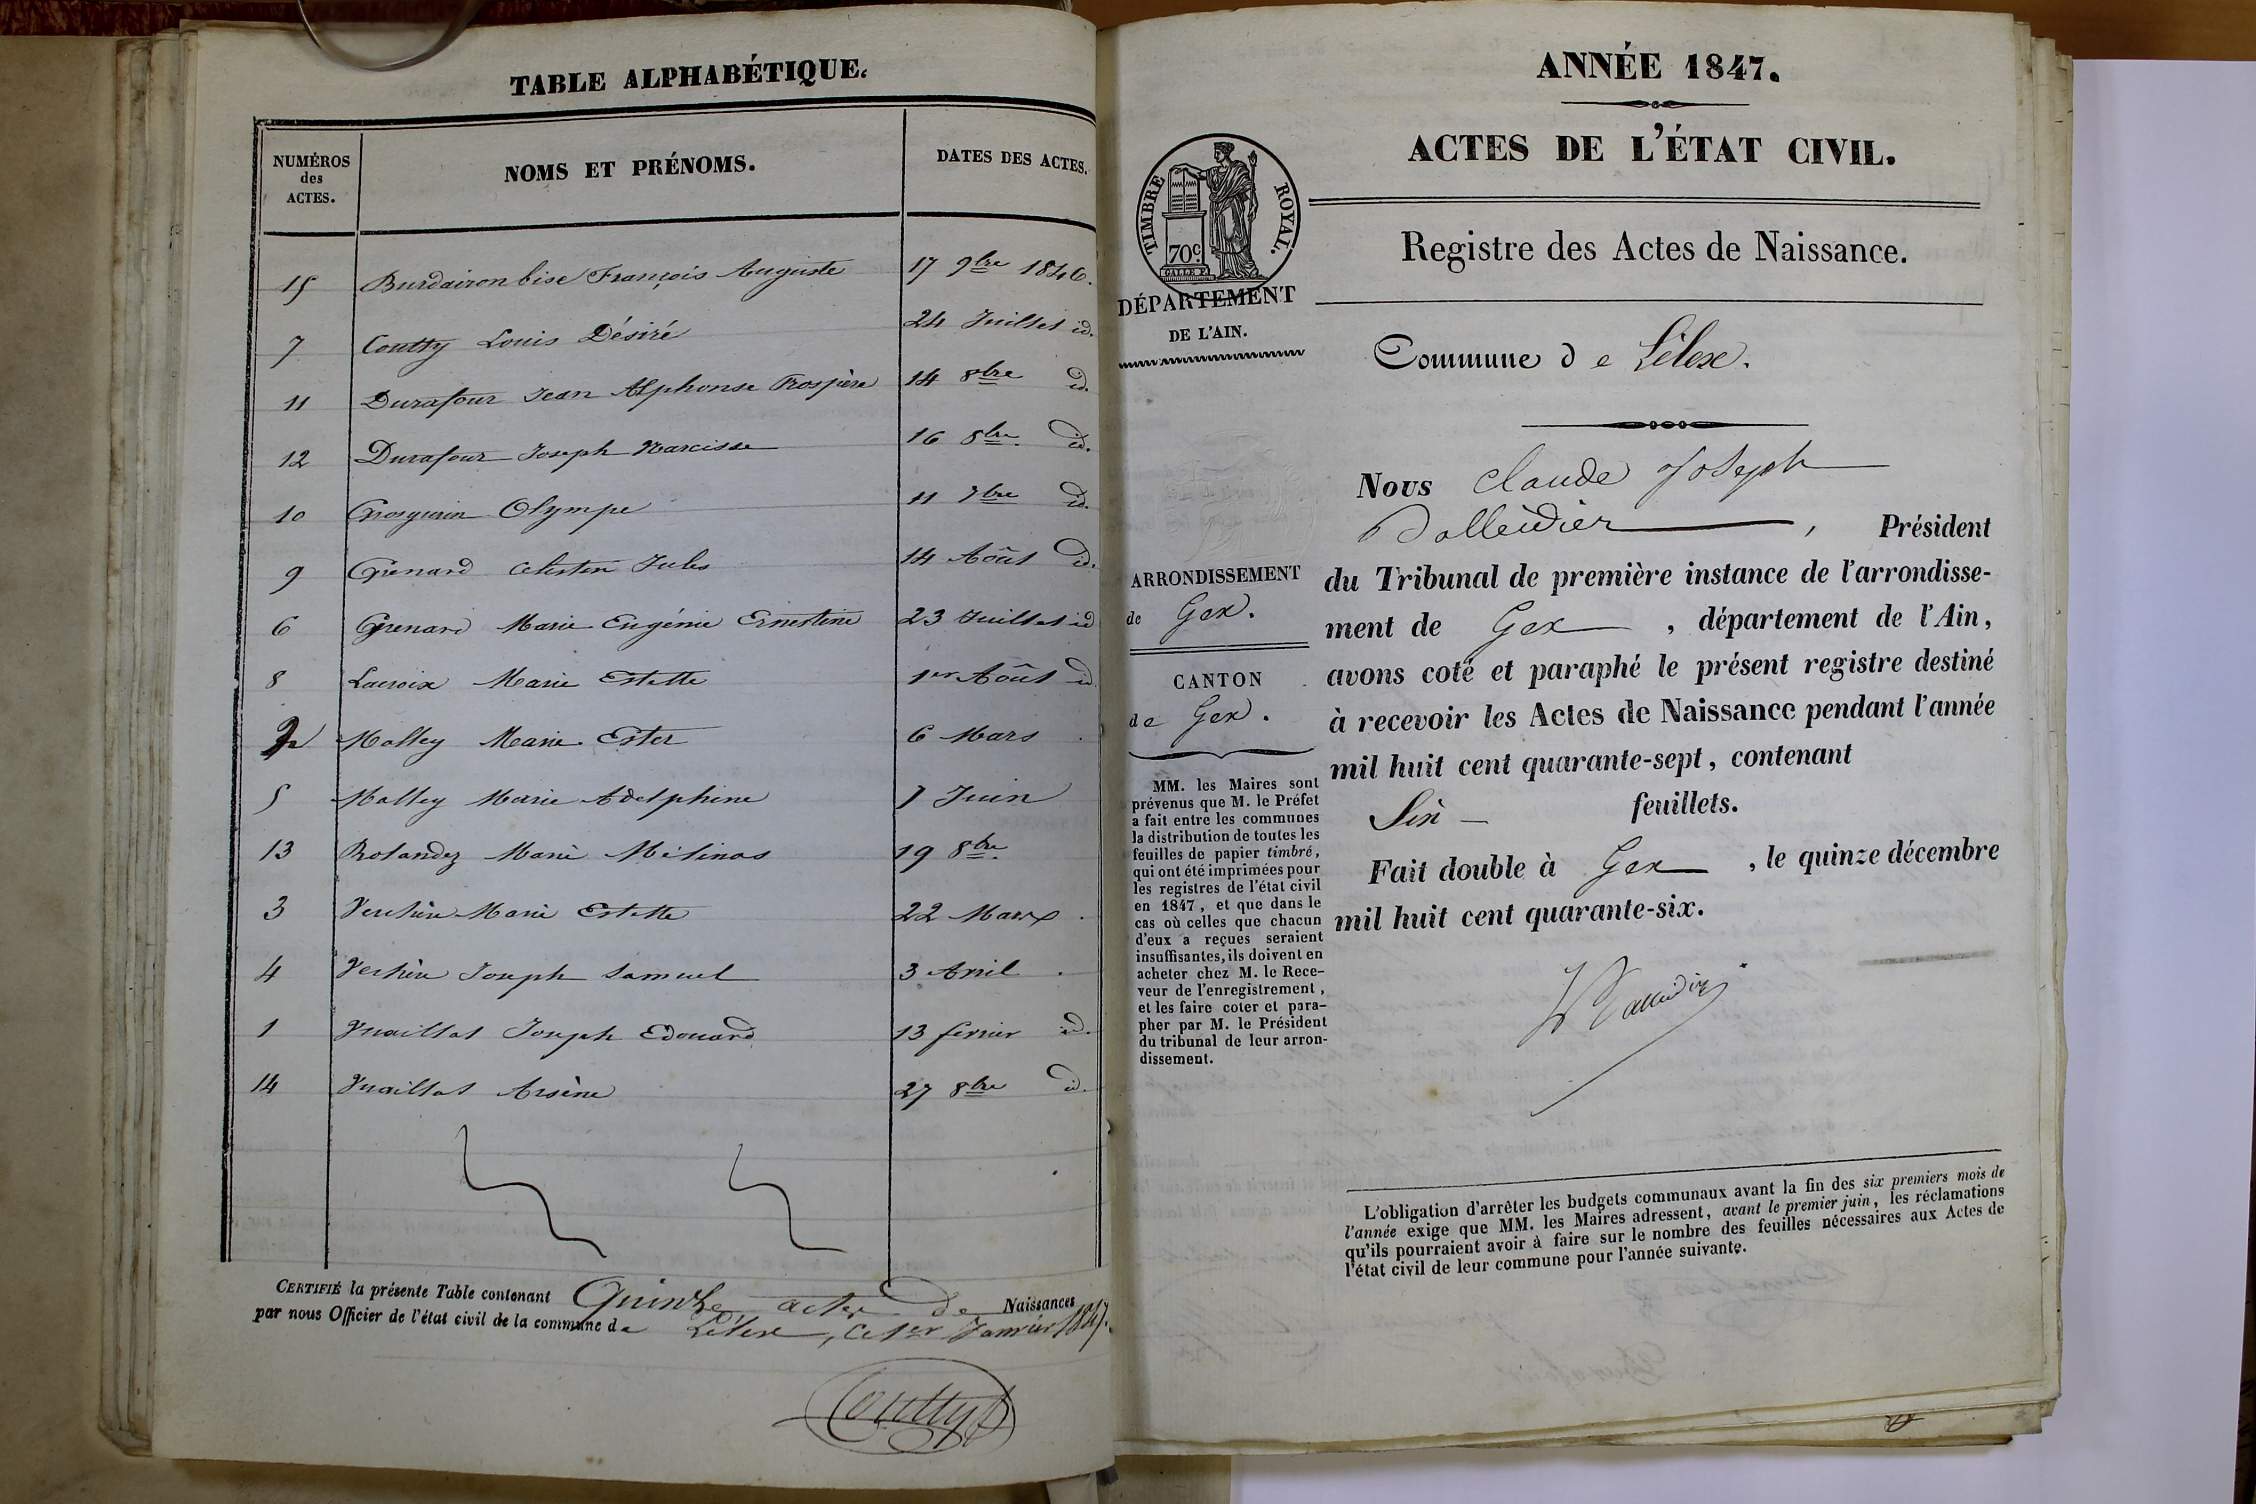 TABLE ALPHABÉTIQUE.
NUMÉROS des ACTES. NOMS ET PRÉNOMS. DATES DES ACTES.
15 Burdairon bise François Auguste 17 9bre 1846.
7 Coutty Louis Désiré 24 Juillet id.
11 Durafour Jean Alphonse Prospère 14 8bre id.
12 Durafour Joseph Narcisse 16 8bre id.
10 Grosgurin Olympe 11 7bre id.
9 Grenard Célestin Jules 14 Août id.
6 Grenard Marie Eugénie Ernestine 23 Juillet id
8 Lacroix Marie Estelle 1er Août id
2 Molley Marie Ester 6 Mars
5 Molley Marie Adelphine 7 Juin
13 Rolandez Marie Mélinas 19 8bre
3 Verchère Marie Estelle 22 Mars
4 Verchère Joseph Samuel 3 Avril
1 Vuaillat Joseph Edouard 13 février id.
14 Vuaillat Arsène 27 8bre id.
CERTIFIÉ la présente Table contenant Quinze actes de Naissances
par nous Officier de l'état civil de la commune de Lélex, ce 1er Janvier 1847.
Coutty
ANNÉE 1847.
ACTES DE L'ÉTAT CIVIL.
Registre des Actes de Naissance.
TIMBRE ROYAL.
70c.
DÉPARTEMENT
DE L'AIN.
Commune de Lélex.
ARRONDISSEMENT
de Gex.
CANTON
de Gex.
MM. les Maires sont
prévenus que M. le Préfet
a fait entre les communes
la distribution de toutes les
feuilles de papier timbré,
qui ont été imprimées pour
les registres de l'état civil
en 1847, et que dans le
cas où celles que chacun
d'eux a reçues seraient
insuffisantes, ils doivent en
acheter chez M. le Rece-
veur de l'enregistrement,
et les faire coter et para-
pher par M. le Président
du tribunal de leur arron-
dissement.
Nous Claude Joseph
Balleidier, Président
du Tribunal de première instance de l'arrondisse-
ment de Gex, département de l'Ain,
avons coté et paraphé le présent registre destiné
à recevoir les Actes de Naissance pendant l'année
mil huit cent quarante-sept, contenant
Six feuillets.
Fait double à Gex, le quinze décembre
mil huit cent quarante-six.
L'obligation d'arrêter les budgets communaux avant la fin des six premiers mois de
l'année exige que MM. les Maires adressent, avant le premier juin, les réclamations
qu'ils pourraient avoir à faire sur le nombre des feuilles nécessaires aux Actes de
l'état civil de leur commune pour l'année suivante.